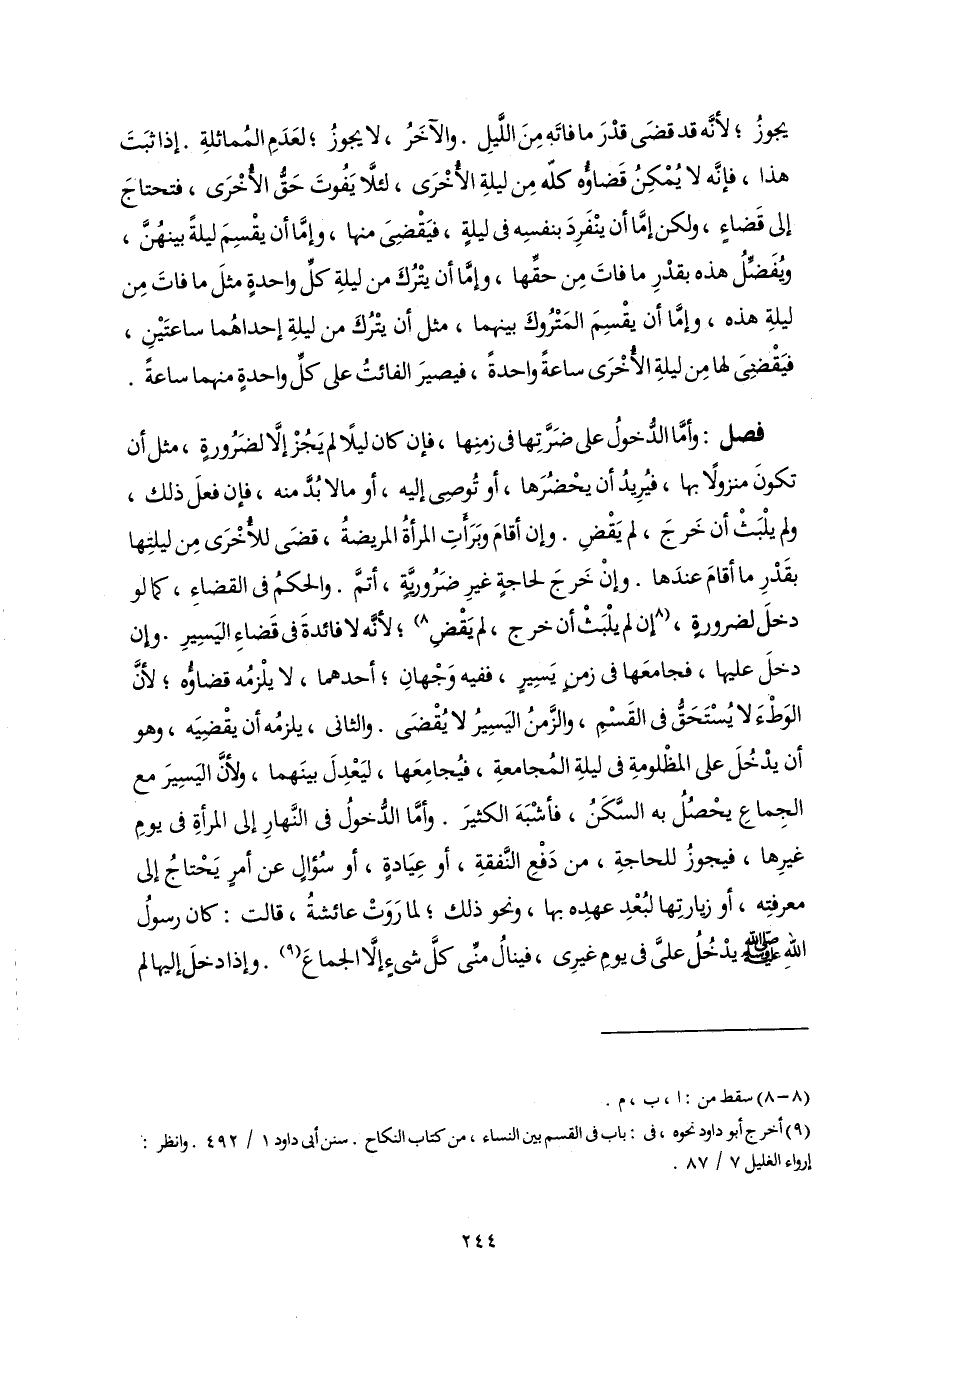 يجوزُ ؛ لأنَّه قد قضَى قدْرَ ما فاتَه مِنَ اللَّيلِ . والآخَرُ ، لا يجوزُ ؛ لعَدَمِ المُماثلةِ . إذا ثبَتَ
هذا ، فإنَّه لا يُمْكِنُ قَضاؤُه كلّه مِن ليلةِ الأُخْرَى ، لئلَّا يَفُوتَ حَقُّ الأُخْرَى ، فتحتاجَ
إلى قَضاءٍ ، ولكن إمَّا أن ينْفَرِدَ بنفسِه فى ليلةٍ ، فيَقْضِىَ منها ، وإمَّا أن يقْسِمَ ليلةً بينهُنَّ ،
ويُفَضِّلُ هذه بقدْرِ ما فاتَ مِن حقِّها ، وإمَّا أن يتْرُكَ من ليلةِ كلِّ واحدةٍ مثلَ ما فاتَ مِن
ليلةِ هذه ، وإمَّا أن يقْسِمَ المَتْرُوكَ بينهما ، مثل أن يتْرُكَ من ليلةِ إحداهُما ساعتَيْنِ ،
فيَقْضِىَ لها مِن ليلةِ الأُخْرَى ساعةً واحدةً ، فيصيرَ الفائتُ على كلِّ واحدةٍ منهما ساعةً .
فصل : وأمَّا الدُّخولُ على ضَرَّتِها فى زمنِها ، فإن كان ليلًا لم يَجُزْ إلَّا لضَرُورةٍ ، مثل أن
تكونَ منزولًا بها ، فيُرِيدُ أن يحْضُرَها ، أو تُوصِى إليه ، أو مالا بُدَّ منه ، فإن فعلَ ذلك ،
ولم يلْبَثْ أن خَرجَ ، لم يَقْضِ . وإن أقامَ وبَرَأَتِ المرأةُ المريضةُ ، قضَى للأُخْرَى مِن ليلتِها
بقَدْرِ ما أقامَ عندَها . وإنْ خَرجَ لحاجةٍ غيرِ ضَرُوريَّةٍ ، أثمَّ . والحكمُ فى القضاءِ ، كما لو
دخلَ لضرورةٍ ، (٨إن لم يلْبَثْ أن خرج ، لم يَقْضِ٨) ؛ لأنَّه لا فائدةَ فى قَضاءِ اليَسيرِ . وإن
دخلَ عليها ، فجامعَها فى زمنٍ يَسيرٍ ، ففيه وَجْهانِ ؛ أحدهما ، لا يلْزمُه قضاؤُه ؛ لأنَّ
الوَطْءَ لا يُسْتَحَقُّ فى القَسْمِ ، والزَّمنُ اليَسيرُ لا يُقْضَى . والثانى ، يلزمُه أن يقْضِيَه ، وهو
أن يدْخُلَ على المظْلومةِ فى ليلةِ المُجامعةِ ، فيُجامِعَها ، ليَعْدِلَ بينَهما ، ولأنَّ اليَسيرَ مع
الجِماعِ يحْصُلُ به السَّكَنُ ، فأشْبَهَ الكثيرَ . وأمَّا الدُّخولُ فى النَّهارِ إلى المرأةِ فى يومِ
غيرِها ، فيجوزُ للحاجةِ ، من دَفْعِ النَّفقةِ ، أو عِيَادةٍ ، أو سُؤالٍ عن أمرٍ يَحْتاجُ إلى
معرفتِه ، أو زيارتِها لبُعْدِ عهدِه بها ، ونحو ذلك ؛ لما رَوَتْ عائشةُ ، قالت : كان رسولُ
اللهِ ﷺ يدْخُلُ علىَّ فى يومِ غيرِى ، فينالُ منِّى كلَّ شىءٍ إلَّا الجماعَ(٩) . وإذا دخلَ إليها لم
(٨-٨) سقط من : ا ، ب ، م .
(٩) أخرج أبو داود نحوه ، فى : باب فى القسم بين النساء ، من كتاب النكاح . سنن أبى داود ١ / ٤٩٢ . وانظر :
إرواء الغليل ٧ / ٨٧ .
٢٤٤